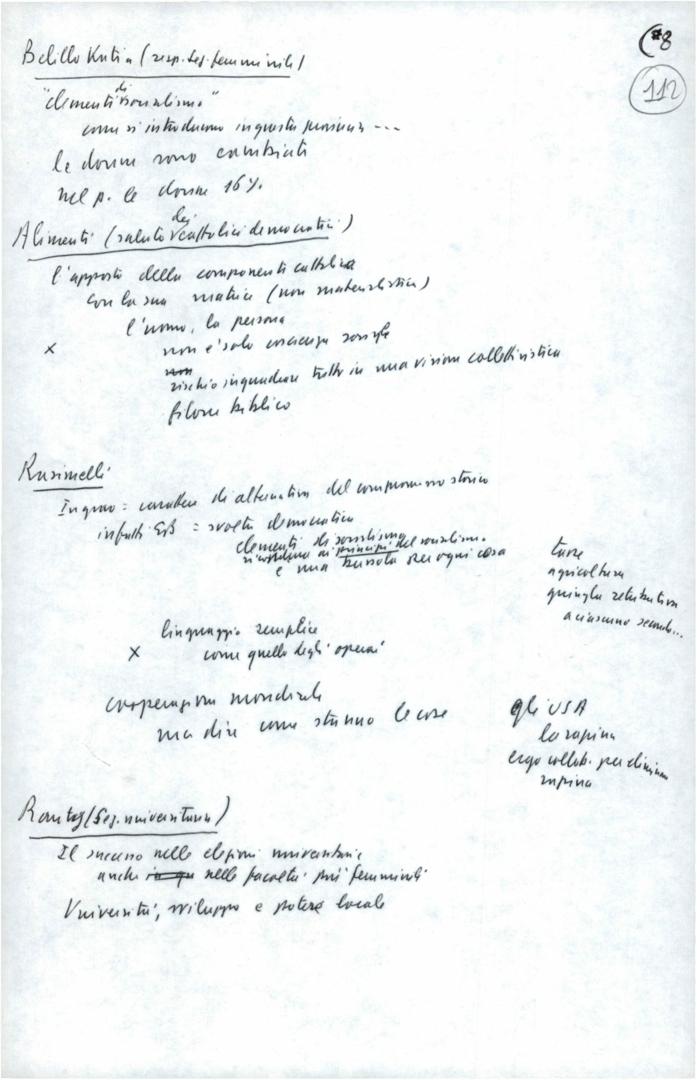 #8
112
Belillo Katia (resp. sez. femminile)
"elementi di socialismo"
come si introducono in questa ...
le donne sono cambiati
nel p. le donne 16%
Alimenti (saluto dei cattolici democratici)
l'apporto della componente cattolica
con la sua matrice (non materialistica)
l'uomo, la persona
x non è solo coscienza sociale
rischio inquadrare tutto in una visione collettivistica
filone biblico
Rasimelli
Ingrao = carattere di alternativa del compromesso storico
infatti EB = svolta democratica
elementi di socialismo
ai principi del socialismo.
è una bussola per ogni cosa
tasse
agricoltura
giungla retributiva
a ciascuno secondo...
linguaggio semplice
x come quello degli operai
cooperazione mondiale
ma dire come stanno le cose
gli USA
la rapina
ergo collab. per
rapina
(Sez. universitaria)
Il successo nelle elezioni universitarie
anche nelle facoltà più femminili
Università, sviluppo e potere locale